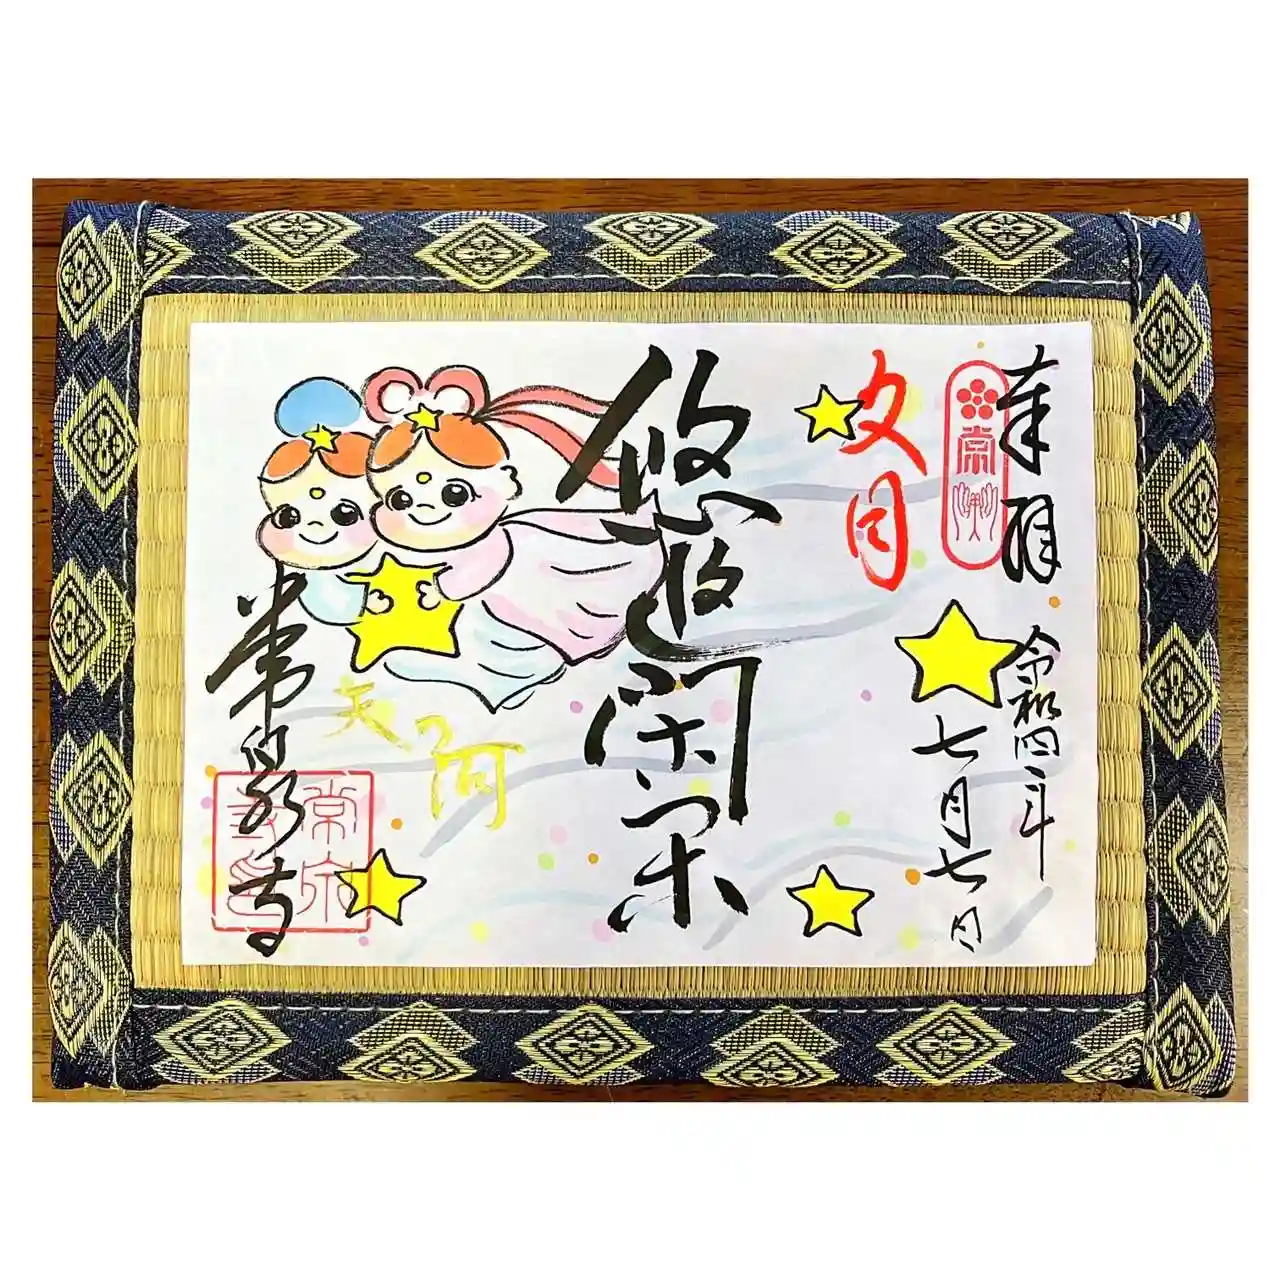 奉拝
常州
令和四年
七月七日
夕月
悠悠閑
天河
常泉寺
常泉寺印